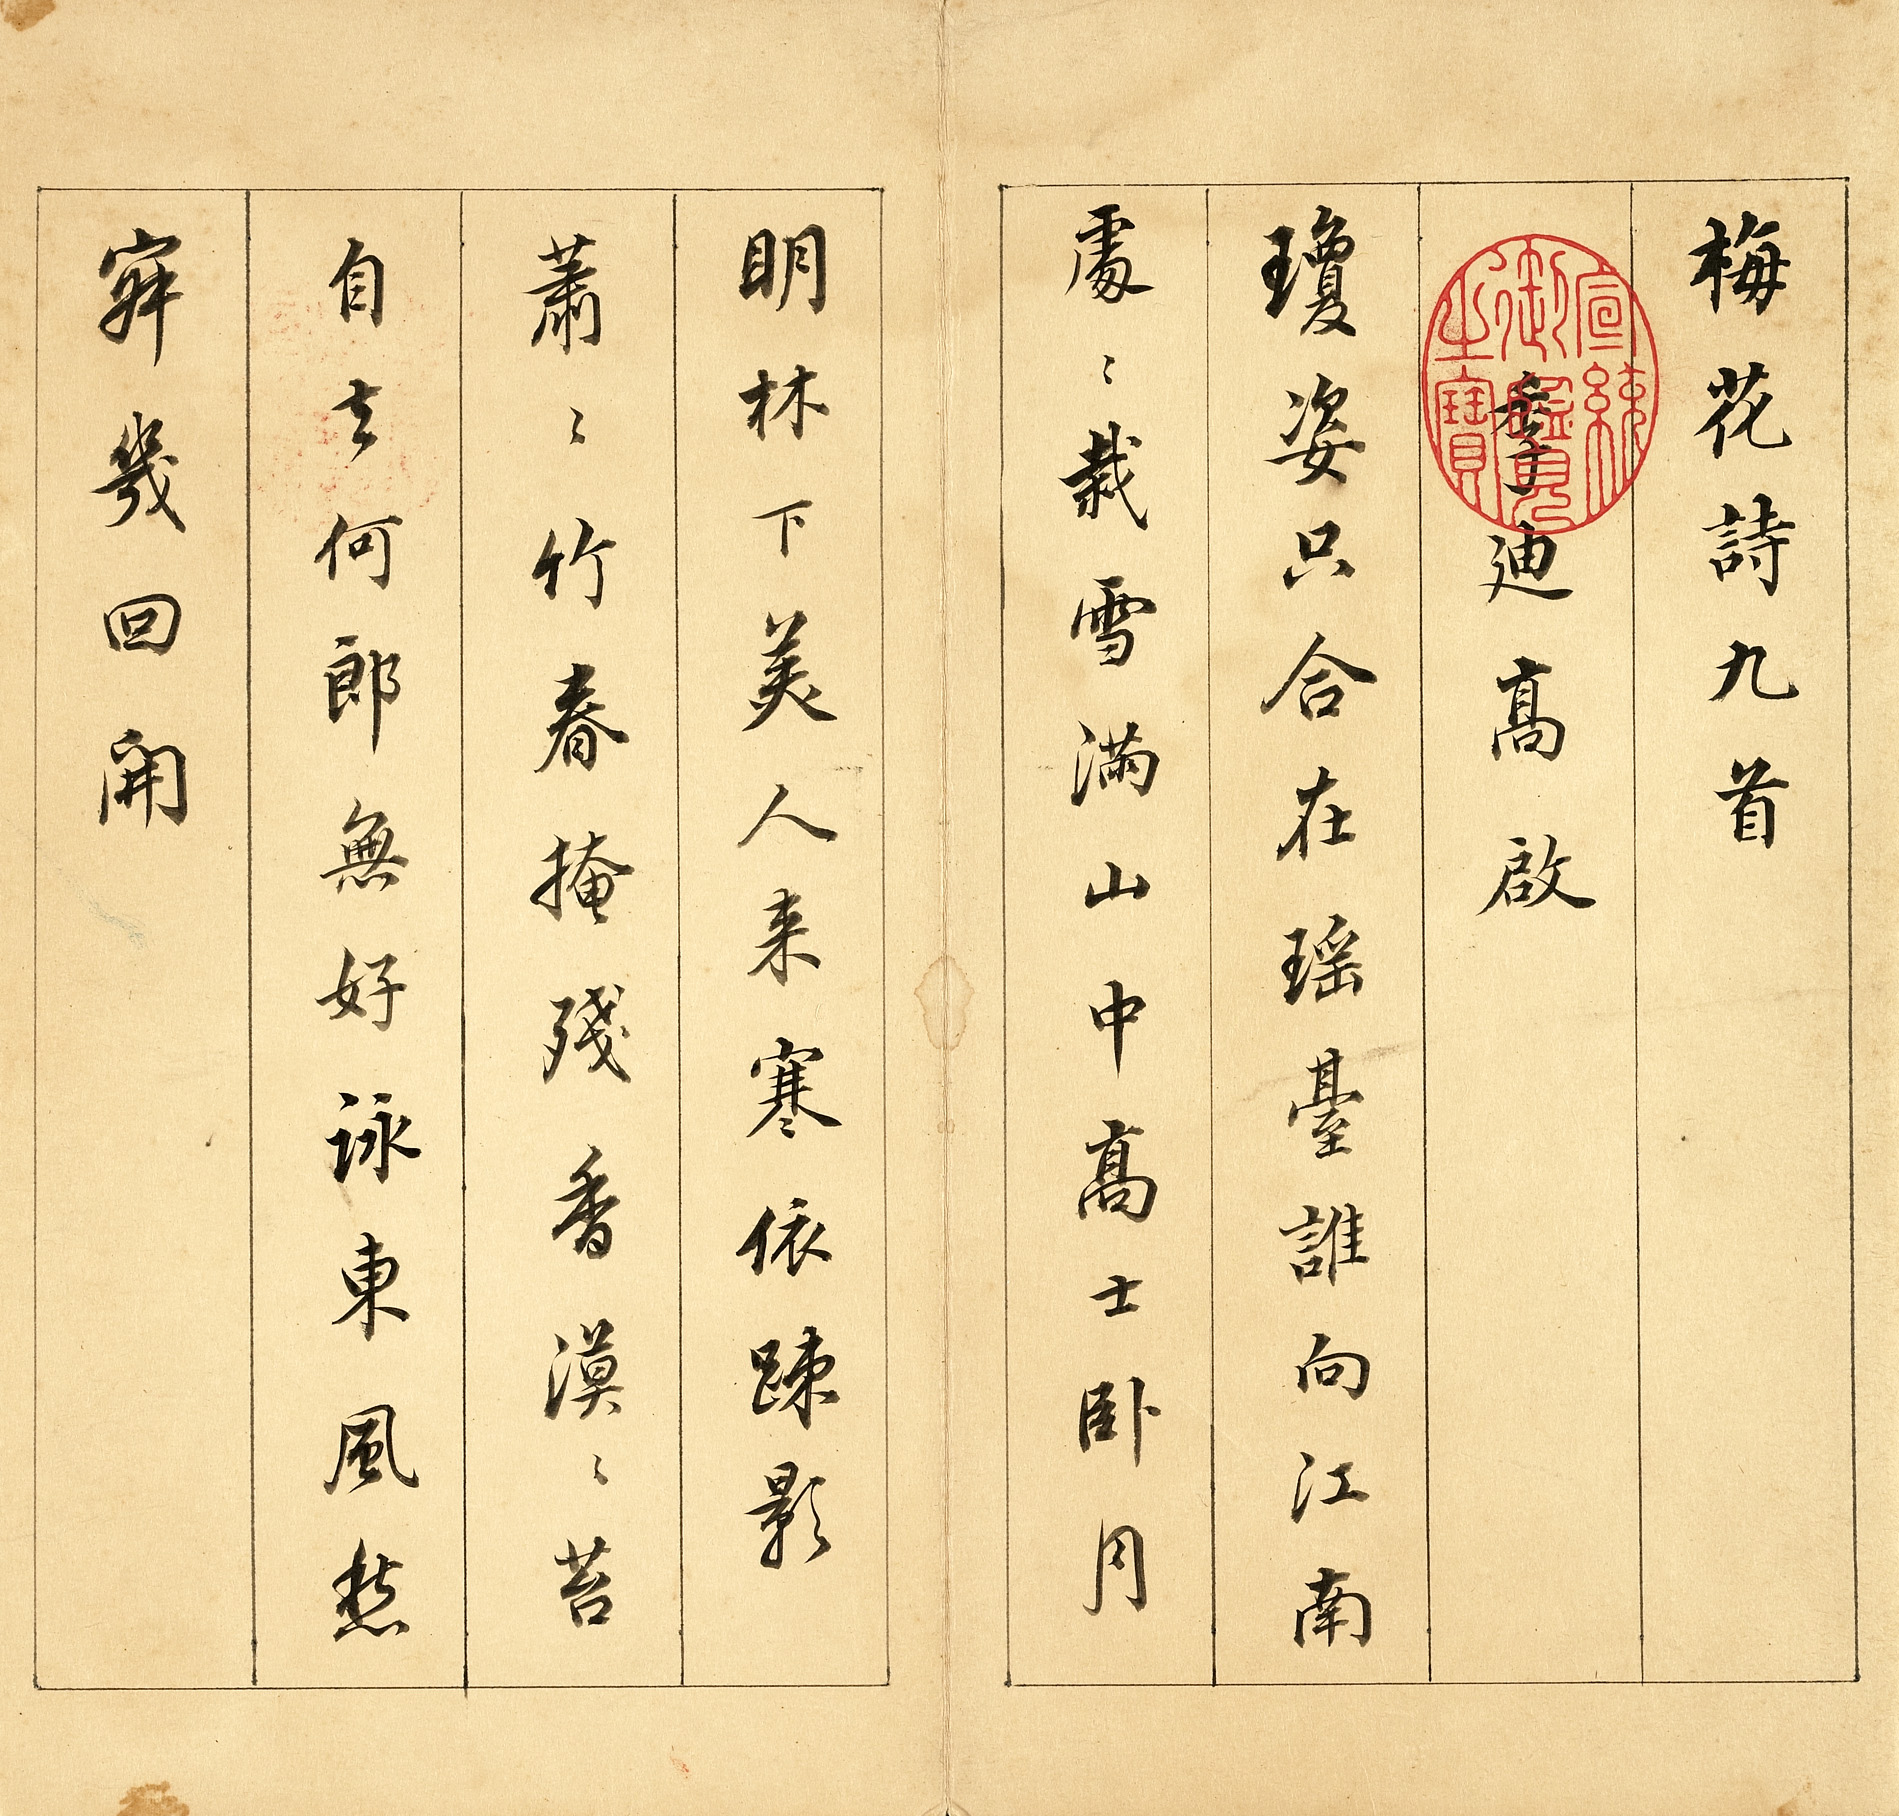 梅花詩九首
季迪高啟
瓊姿只合在瑶臺誰向江南
處〻栽雪滿山中髙士卧月
明林下美人来寒依踈影
蕭〻竹春掩殘香漠〻苔
自去何郎無好詠東風愁
寂幾回開
宣統
御覽
之寶